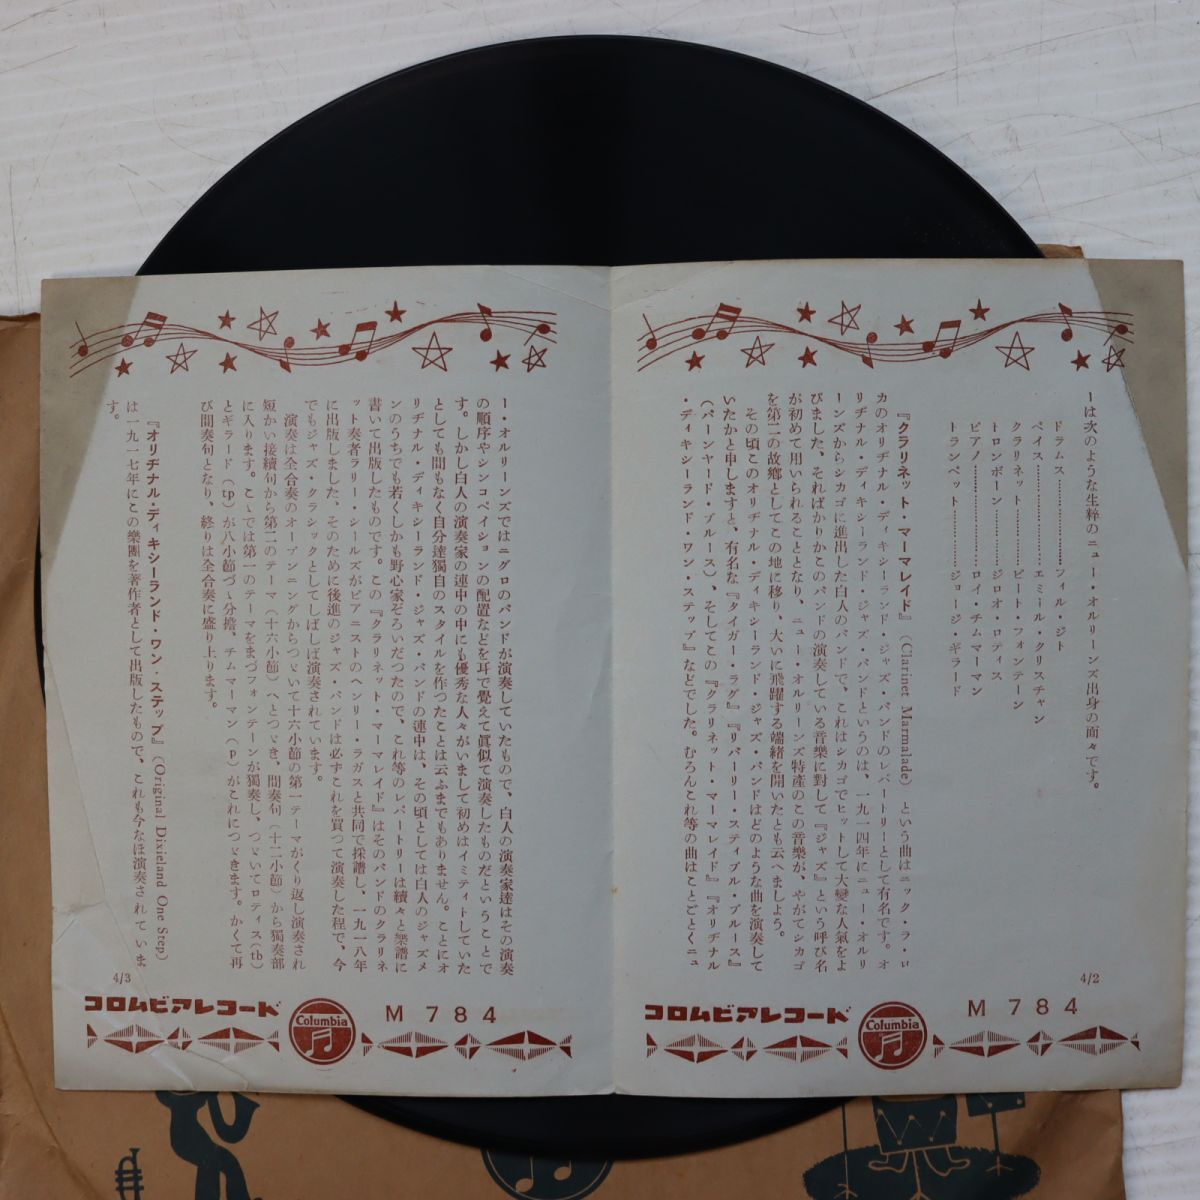 ーは次のような生粋のニュー・オルリーンズ出身の面々です。
ドラムス…………フィル・ジト
ベイス…………エミール・クリスチャン
クラリネット…………ピート・フォンテーン
トロンボーン…………ジロオ・ロティス
ピアノ…………ロイ・チムマーマン
トランペット…………ジョージ・ギラード
『クラリネット・マーマレイド』(Clarinet Marmalade) という曲はニック・ラ・ロ
カのオリヂナル・ディキシーランド・ジャズ・バンドのレパートリーとして有名です。オ
リヂナル・ディキシーランド・ジャズ・バンドというのは、一九一四年にニュー・オルリ
ーンズからシカゴに進出した白人のバンドで、これはシカゴでヒットして大變な人氣をよ
びました、そればかりかこのバンドの演奏している音樂に對して『ジャズ』という呼び名
が初めて用いられることとなり、ニュー・オルリーンズ特産のこの音樂が、やがてシカゴ
を第二の故鄕としてこの地に移り、大いに飛躍する端緒を開いたとも云へましよう。
その頃このオリヂナル・ディキシーランド・ジャズ・バンドはどのような曲を演奏して
いたかと申しますと、有名な『タイガー・ラグ』『リバーリー・スティブル・ブルース』
(バーンヤード・ブルース)、そしてこの『クラリネット・マーマレイド』『オリヂナル
・ディキシーランド・ワン・ステップ』などでした。むろんこれ等の曲はことごとくニュ
4/2
コロムビアレコード
Columbia
M 784
ー・オルリーンズではニグロのバンドが演奏していたもので、白人の演奏家達はその演奏
の順序やシンコペイションの配置などを耳で覺えて眞似て演奏したものだということで
す。しかし白人の演奏家の連中の中にも優秀な人々がいまして初めはイミティトしていた
としても間もなく自分達獨自のスタイルを作つたことは云ふまでもありません。ことにオ
リヂナル・ディキシーランド・ジャズ・バンドの連中は、その頃としては白人のジャズメ
ンのうちでも若くしかも野心家ぞろいだつたので、これ等のレパートリーは續々と樂譜に
書いて出版したものです。この『クラリネット・マーマレイド』はそのバンドのクラリネ
ット奏者ラリー・シールズがピアニストのヘンリー・ラガスと共同で採譜し、一九一八年
に出版しました、そのために後進のジャズ・バンドは必ずこれを買つて演奏した程で、今
でもジャズ・クラシックとしてしばしば演奏されています。
演奏は全合奏のオープンニングからつゞいて十六小節の第一テーマがくり返し演奏され
短かい接續句から第二のテーマ(十六小節)へとつゞき、間奏句(十二小節)から獨奏部
に入ります。こゝでは第一のテーマをまづフォンテーンが獨奏し、つゞいてロティス(tb)
とギラード(tp)が八小節づゝ分擔、チムマーマン(p)がこれにつゞきます。かくて再
び間奏句となり、終りは全合奏に盛り上ります。
『オリヂナル・ディキシーランド・ワン・ステップ』(Original Dixieland One Step)
は一九一七年にこの樂團を著作者として出版したもので、これも今なほ演奏されていま
す。
4/3
コロムビアレコード
Columbia
M 784